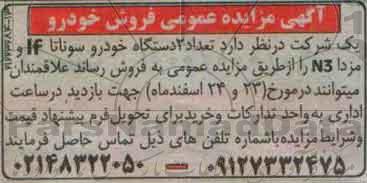 آگهی مزایده عمومی فروش خودرو
یک شرکت درنظر دارد تعداد۲دستگاه خودرو سوناتا lf و
مزدا N3 را ازطریق مزایده عمومی به فروش رساند علاقمندان
میتوانند درمورخ(۲۳ و ۲۴ اسفندماه) جهت بازدید درساعت
اداری به واحد تدارکات وخرید برای تحویل فرم پیشنهاد قیمت
وشرایط مزایده باشماره تلفن های ذیل تماس حاصل فرمایند
۰۲۱۴۸۳۲۲۰۵۰ ۰۹۱۲۷۳۳۲۴۷۵